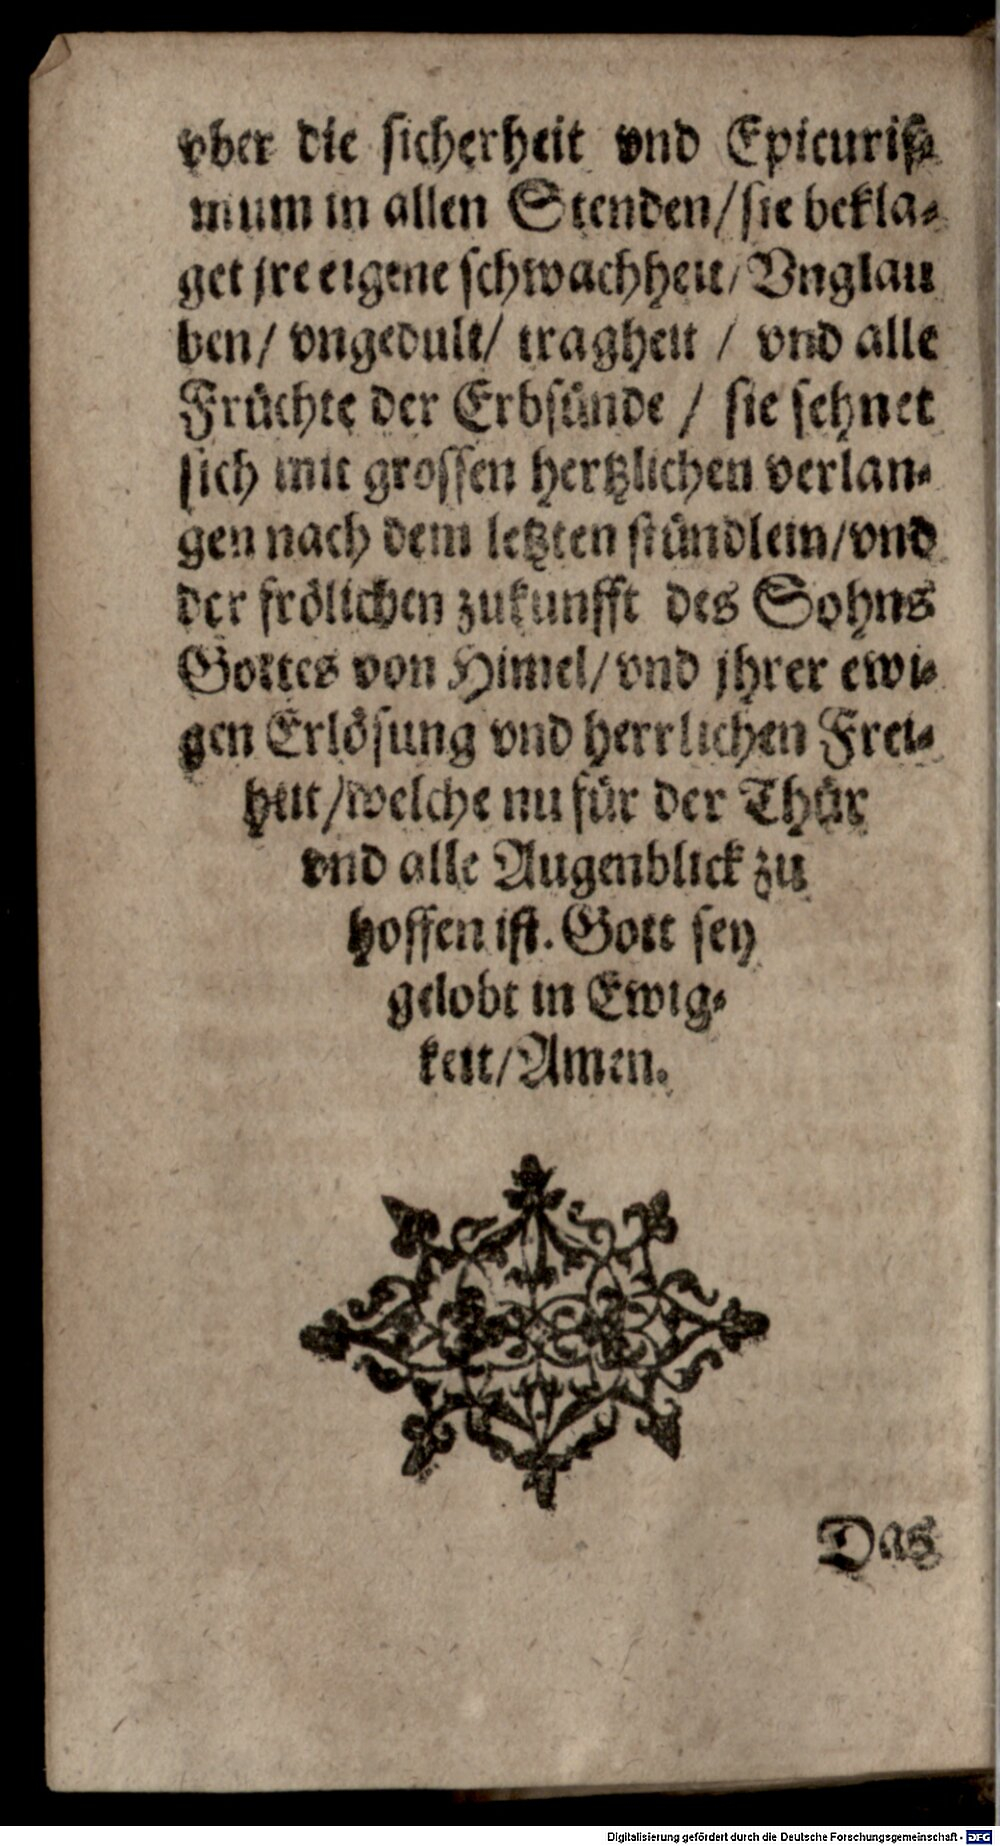 vber die sicherheit vnd Epicuriſ⸗
mum in allen Stenden/ sie bekla⸗
get jre eigene schwachheit/ Vnglau
ben/ vngedult/ tragheit / vnd alle
Früchte der Erbsünde / sie sehnet
sich mit grossen hertzlichen verlan⸗
gen nach dem letzten stündlein/ vnd
der frölichen zukunfft des Sohns
Gottes von Himel/ vnd jhrer ewi⸗
gen Erlösung vnd herrlichen Frei⸗
heit/ welche nu für der Thür
vnd alle Augenblick zu
hoffen ist. Gott sey
gelobt in Ewig⸗
keit/ Amen.
Das
Digitalisierung gefördert durch die Deutsche Forschungsgemeinschaft - DFG